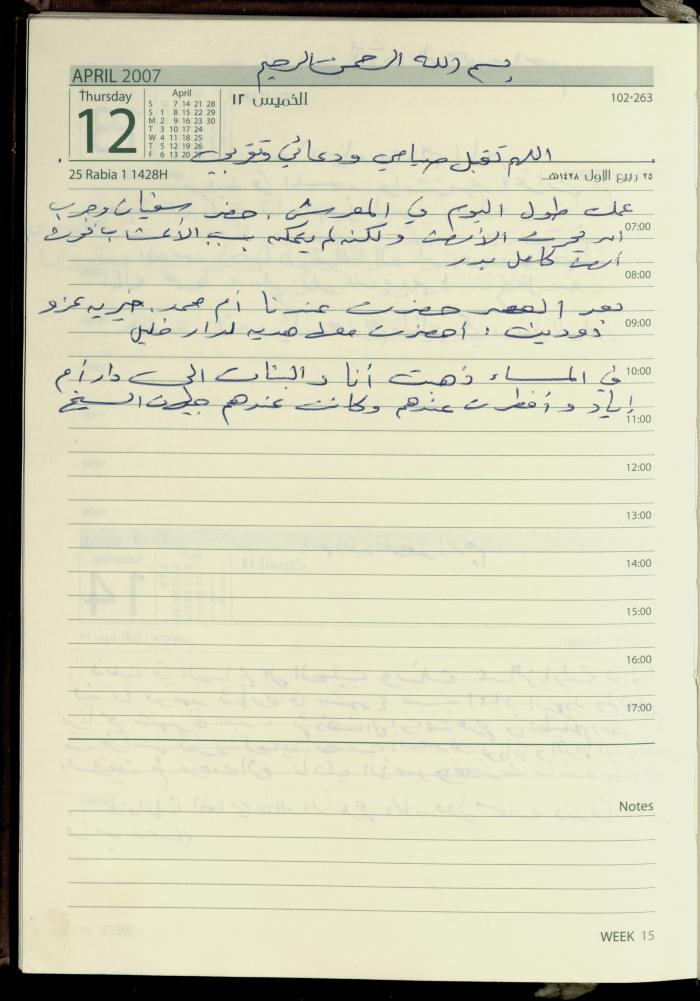 بسم الله الرحمن الرحيم
APRIL 2007
Thursday
12
April
S 7 14 21 28
S 1 8 15 22 29
M 2 9 16 23 30
T 3 10 17 24
W 4 11 18 25
T 5 12 19 26
F 6 13 20 27
الخميس ١٢
102-263
اللهم تقبل صيامي ودعائي وتوبتي
25 Rabia 1 1428H
٢٥ ربيع الاول ١٤٢٨هـ
عملت طول اليوم في المعرش. حضر سفيان وجرب
07:00
ان يحرث الأرض ولكنه لم يتمكن بسبب الأعشاب فحرث
أرض كامل بدر
08:00
بعد العصر حضرت عندنا أم محمد. خيريه عزو
09:00
أحضرت معها هديه لدار خليل
10:00
في المساء ذهبت أنا والبنات الى دار أم
إياد وأفطرت عندهم وكانت عندهم الشيخ
11:00
12:00
13:00
14:00
15:00
16:00
17:00
Notes
WEEK 15